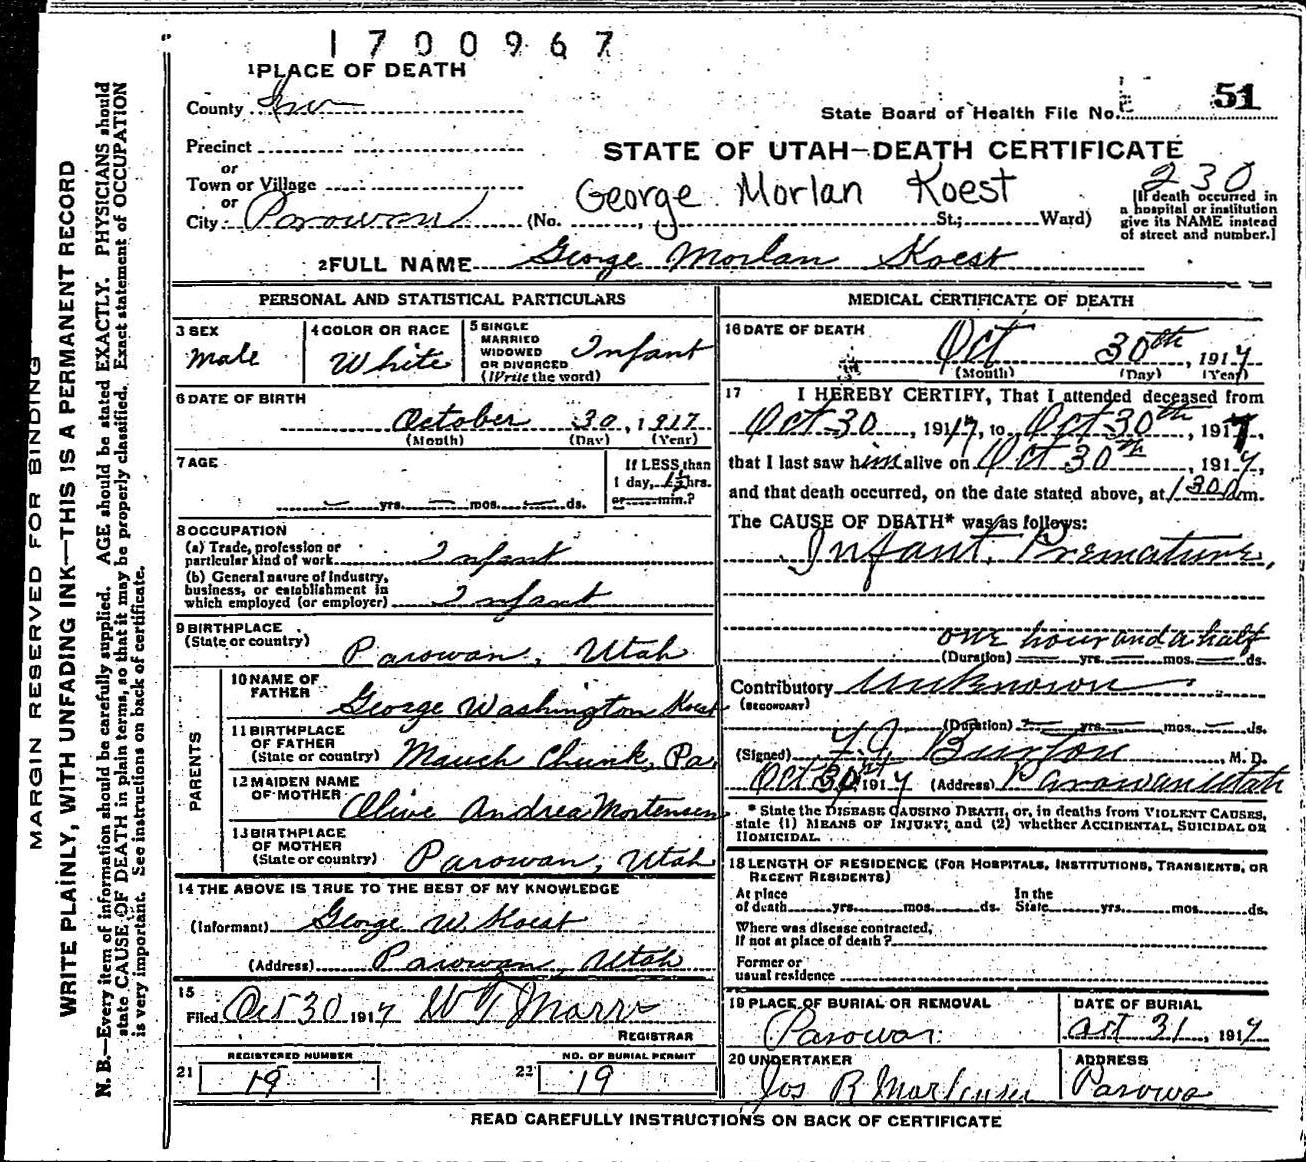 1700967
1 PLACE OF DEATH
County
State Board of Health File No. 51
Precinct
STATE OF UTAH—DEATH CERTIFICATE
or
Town or Village
George Morlan Koest
230
or
City Parowan (No. St.; Ward)
[If death occurred in
a hospital or institution
give its NAME instead
of street and number.]
2 FULL NAME George Morlan Koest
PERSONAL AND STATISTICAL PARTICULARS
3 SEX
Male
4 COLOR OR RACE
White
5 SINGLE
MARRIED
WIDOWED
OR DIVORCED
(Write the word)
Infant
6 DATE OF BIRTH
October 30, 1917
(Month) (Day) (Year)
7 AGE
yrs. mos. ds.
If LESS than
1 day, 1½ hrs.
or min.?
8 OCCUPATION
(a) Trade, profession or
particular kind of work Infant
(b) General nature of Industry,
business, or establishment in
which employed (or employer) Infant
9 BIRTHPLACE
(State or country)
Parowan, Utah
PARENTS
10 NAME OF
FATHER
George Washington Koest
11 BIRTHPLACE
OF FATHER
(State or country) Mauch Chunk, Pa.
12 MAIDEN NAME
OF MOTHER
Olive Andrea Mortensen
13 BIRTHPLACE
OF MOTHER
(State or country) Parowan, Utah
14 THE ABOVE IS TRUE TO THE BEST OF MY KNOWLEDGE
(Informant) George W. Koest
(Address) Parowan, Utah
15
Filed Oct 30 1917 W T Marr
REGISTRAR
REGISTERED NUMBER
21 19
NO. OF BURIAL PERMIT
22 19
MEDICAL CERTIFICATE OF DEATH
16 DATE OF DEATH
Oct 30th, 1917
(Month) (Day) (Year)
17 I HEREBY CERTIFY, That I attended deceased from
Oct 30, 1917, to Oct 30th, 1917,
that I last saw him alive on Oct 30th, 1917,
and that death occurred, on the date stated above, at 130 m.
The CAUSE OF DEATH* was as follows:
Infant, Premature,
one hour and a half
(Duration) yrs. mos. ds.
Contributory Unknown
(SECONDARY)
(Duration) yrs. mos. ds.
(Signed) Burton M. D.
Oct 30 1917 (Address) Parowan Utah
* State the DISEASE CAUSING DEATH, or, in deaths from VIOLENT CAUSES,
state (1) MEANS OF INJURY; and (2) whether ACCIDENTAL, SUICIDAL OR
HOMICIDAL.
18 LENGTH OF RESIDENCE (FOR HOSPITALS, INSTITUTIONS, TRANSIENTS, OR
RECENT RESIDENTS)
At place In the
of death yrs. mos. ds. State yrs. mos. ds.
Where was disease contracted,
If not at place of death?
Former or
usual residence
19 PLACE OF BURIAL OR REMOVAL
Parowan
DATE OF BURIAL
Oct 31, 1917
20 UNDERTAKER
Jos R Mortensen
ADDRESS
Parowan
READ CAREFULLY INSTRUCTIONS ON BACK OF CERTIFICATE
MARGIN RESERVED FOR BINDING
WRITE PLAINLY, WITH UNFADING INK—THIS IS A PERMANENT RECORD
N. B.—Every item of information should be carefully supplied. AGE should be stated EXACTLY. PHYSICIANS should
state CAUSE OF DEATH in plain terms, so that it may be properly classified. Exact statement of OCCUPATION
is very important. See instructions on back of certificate.